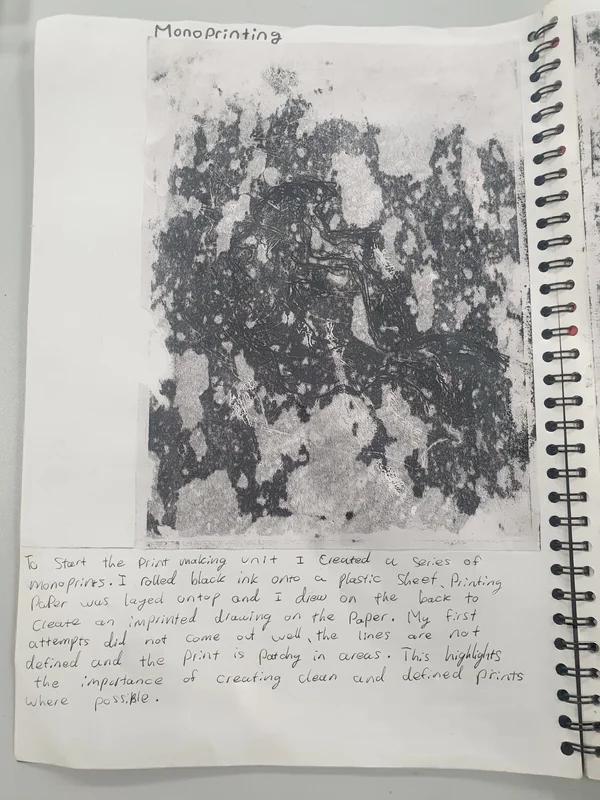 Monoprinting
To Start the Print making unit I Created a series of
monoprints. I rolled black ink onto a plastic sheet. Printing
Paper was layed ontop and I drew on the back to
Create an imprinted drawing on the Paper. My first
attempts did not come out well, the lines are not
defined and the print is Patchy in areas. This highlights
the importance of creating clean and defined prints
where possible.